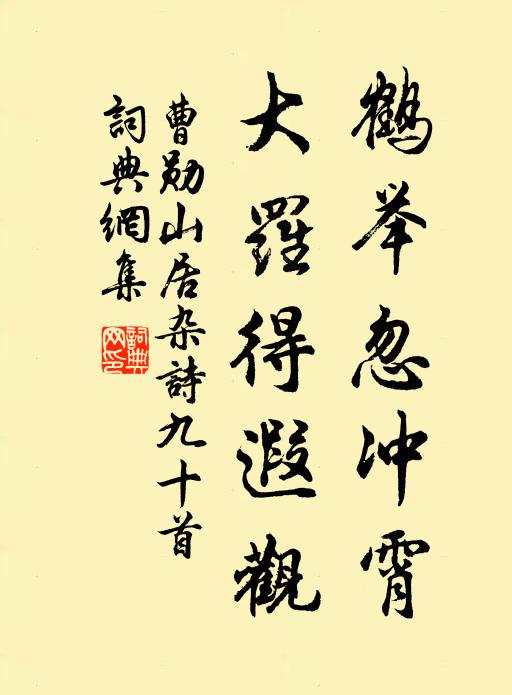 鶴举忽冲霄
大羅得遐觀
曹勋山居杂詩九十首
詞典網集
詞典
网印